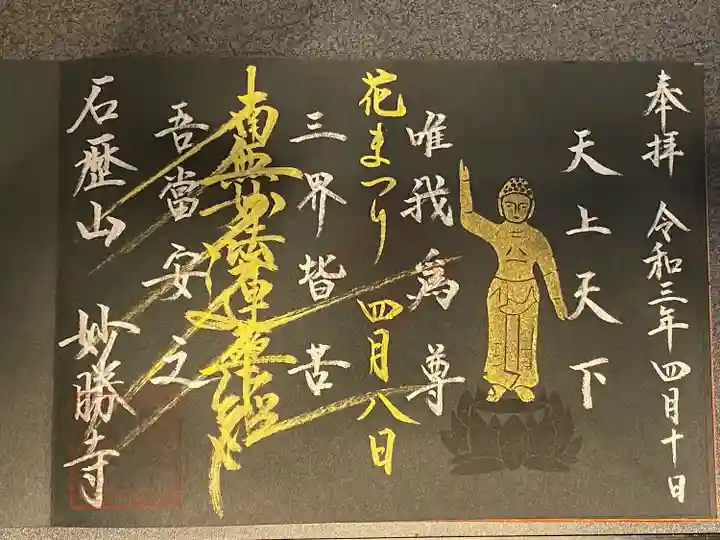 奉拝 令和三年四月十日
天上天下
唯我為尊
花まつり 四月八日
三界皆苦
南無妙法蓮華経
吾當安之
石歷山 妙勝寺